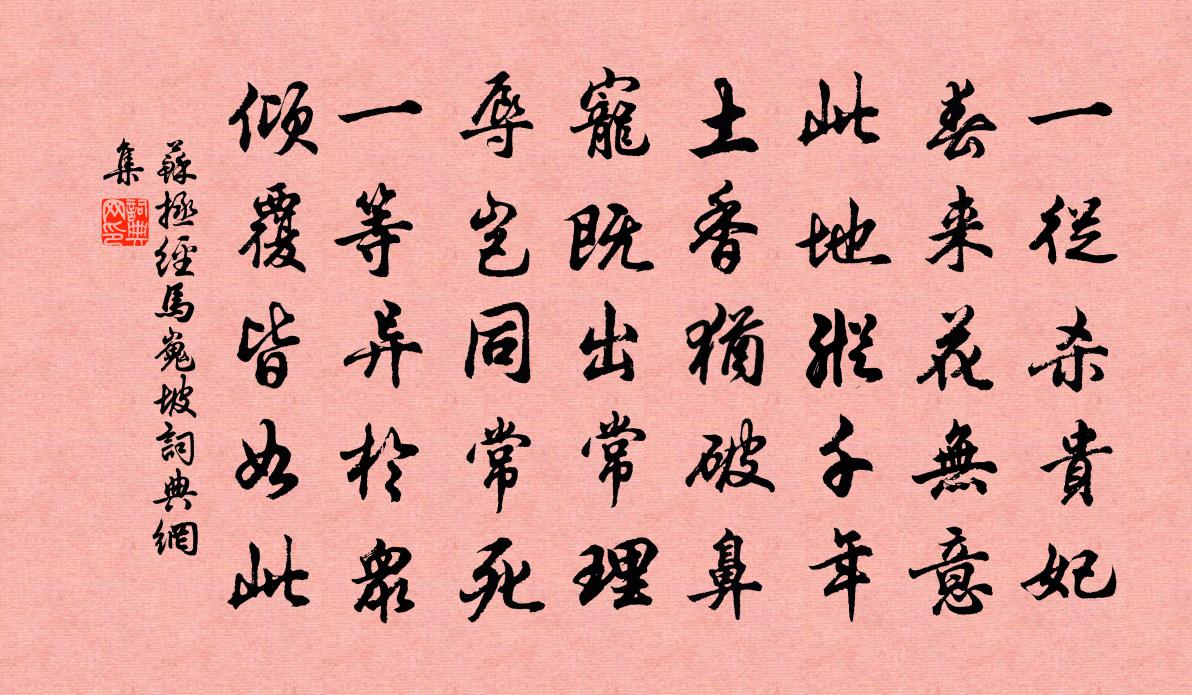 一從杀貴妃
春来花無意
此地縱千年
土香猶破鼻
寵既出常理
辱岂同常死
一等异於衆
傾覆皆如此
蘇拯經馬嵬坡詞典網
集
詞典
网印